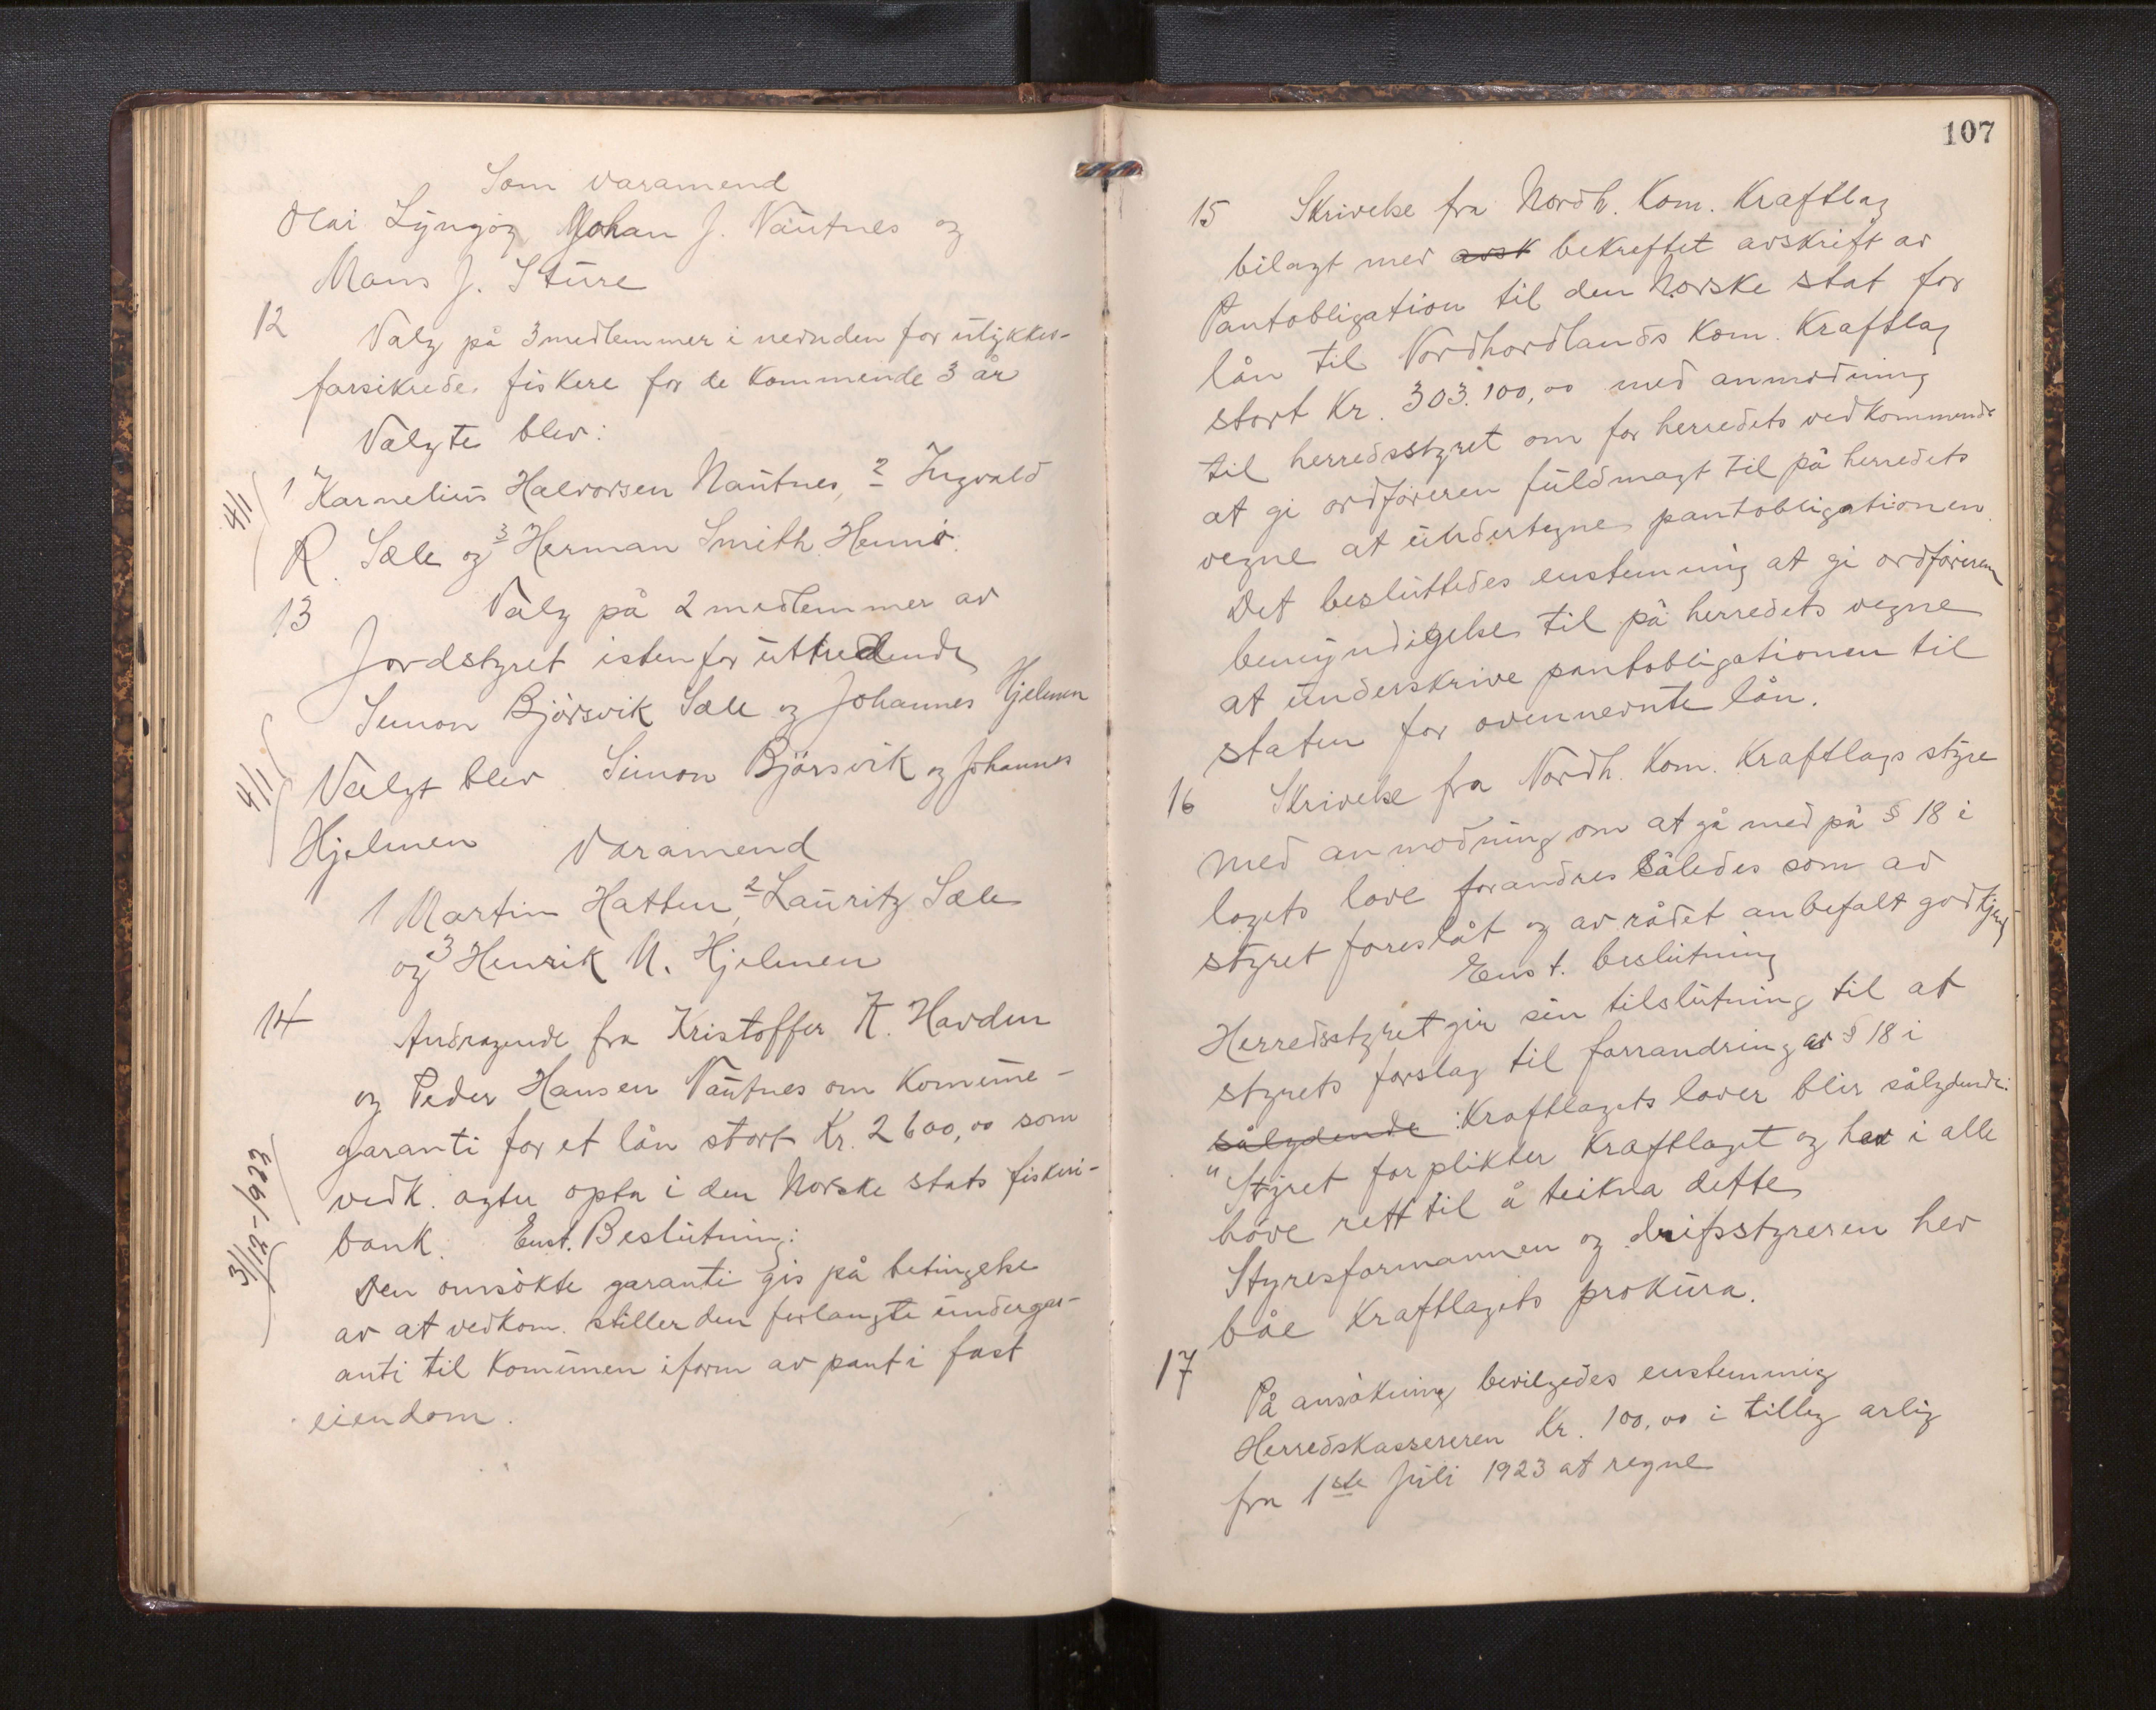 Som varamend
Olai Lyngøy Johan J. Nautnes og
Mons J. Sture
12 Valg på 3 medlemmer i nevnden for ulykkes-
forsikrede fiskere for de kommende 3 år
Valgte blev:
4/1 1 Karnelius Halvorsen Nautnes, 2 Ingvald
R. Sæle og 3 Herman Smith Hennø.
13 Valg på 2 medlemmer av
Jordstyret istenfor uttredende
Simon Bjørsvik Sæle og Johannes Hjelmen
4/1 Valgt blev Simon Bjørsvik og Johannes
Hjelmen Varamend
1 Martin Hatten, 2 Lauritz Sæle
og 3 Henrik N. Hjelmen
14 Andragende fra Kristoffer K. Havden
og Peder Hansen Nautnes om Komune-
garanti for et lån stort Kr. 2600,00 som
vedk. agter opta i den Norske stats fiskeri-
bank. Enst. Beslutning:
3/12-1923 Den omsøkte garanti gis på betingelse
av at vedkom. stiller den forlangte undergar-
anti til Komunen iform av pant i fast
eiendom.
107
15 Skrivelse fra Nordh. Kom. Kraftlag
bilagt med avsk bekreftet avskrift av
Pantobligation til den Norske stat for
lån til Nordhordlands Kom. Kraftlag
stort Kr. 303.100,00 med anmodning
til herredsstyret om for herredets vedkommende
at gi ordføreren fuldmagt til på herredets
vegne at undertegne pantobligationen.
Det besluttedes enstemmig at gi ordføreren
bemyndigelse til på herredets vegne
at underskrive pantobligationen til
staten for ovennevnte lån.
16 Skrivelse fra Nordh. Kom. Kraftlags styre
med anmodning om at gå med på § 18 i
lagets love forandres således som av
styret foreslåt og av rådet anbefalt godkjent
Enst. beslutning
Herredsstyret gir sin tilslutning til at
styrets forslag til forrandring av § 18 i
sålydende : Kraftlagets lover blir sålydende:
"Styret forplikter Kraftlaget og hev i alle
høve rett til å teikna dette
Styresformannen og drifsstyreren hev
båe Kraftlagets prokura.
17 På ansøkning bevilgedes enstemmig
Herredskassereren Kr. 100,00 i tilleg arlig
fra 1ste Juli 1923 at regne